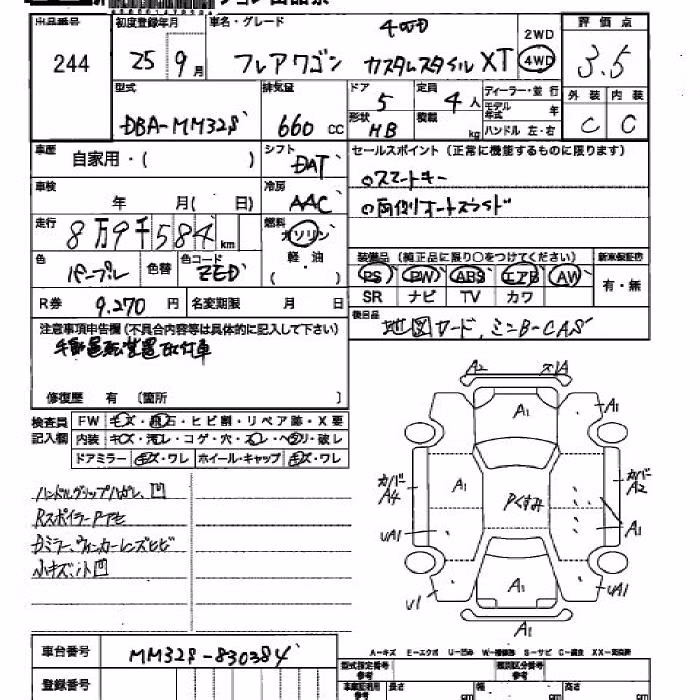 出品番号 244
初度登録年月 25年 9月
車名・グレード 4WD
フレアワゴン カスタムスタイル XT
2WD
4WD
評価点 3.5
外装 内装
C C
型式 DBA-MM32S
排気量 660 cc
ドア 5
定員 4人
形状 HB
積載 kg
ディーラー・並行
モデル年式 年
ハンドル 左・右
車歴 自家用・( )
シフト DAT
セールスポイント (正常に機能するものに限ります)
○スマートキー
○両側オートスライド
車検 年 月( 日)
冷房 AAC
走行 8万9千584km
燃料 ガソリン
軽・油
( )
色 パープル
色替
色コード ZED
装備品 (純正品に限り○をつけてください)
新車保証書
PS PW ABS エアB AW
SR ナビ TV カワ
有・無
R券 9,270 円
名変期限 月 日
後日品
地図カード, ミニB-CAS
注意事項申告欄(不具合内容等は具体的に記入して下さい)
手動運転装置取付車
修復歴 有 〔箇所 〕
検査員記入欄
FW キズ・飛石・ヒビ割・リペア跡・X要
内装 キズ・汚レ・コゲ・穴・スレ・ヘタリ・破レ
ドアミラー キズ・ワレ ホイール・キャップ キズ・ワレ
ハンドルグリップハガレ, 凹
RスポイラーPアセ
Dミラー, ウィンカーレンズヒビ
小キズ, 小凹
A2
A1
A1
カバー A4
A1
Pくすみ
カバー A2
UA1
A1
U1
A1
UA1
A1
車台番号 MM32S-830384
登録番号
A-キズ E-エクボ U-凹み S-サビ
型式指定番号 参考
類別区分番号 参考
長さ cm
幅 cm
高さ cm